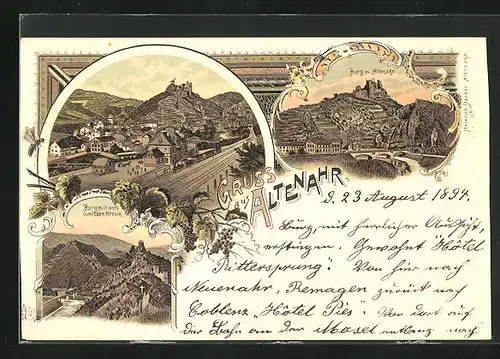 Burg m. Altenahr
GRUSS
aus
ALTENAHR.
Burg mit dem
weissen Kreuz
d. 23 August 1894.
Burg mit herrlicher Aussicht
erstiegen. Gewohnt "Hôtel
Rittersprung". Von hier nach
Neuenahr, Remagen zurück nach
Coblenz, "Hôtel Pies". Von dort auf
der Bahn an der Mosel entlang nach